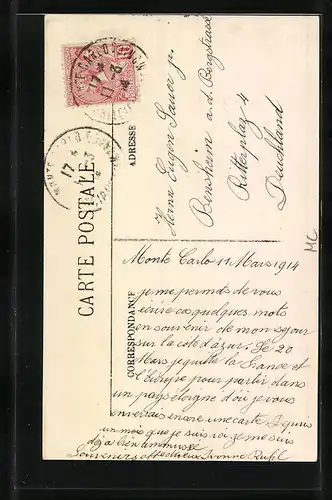 CARTE POSTALE
ADRESSE
Herrn Eugen Sauer jr.
Bensheim a.d. Bergstrasse
Ritterplatz 4
Deuchland
CORRESPONDANCE
Monte Carlo 17 Mars 1914
je me permets de vous
écrire ces quelques mots
en souvenir de mon séjour
sur la côte d'azur. Le 20
Mars je quitte la France et
l'Europe pour partir dans
un pays éloigné d'où je vous
enverrais encore une carte. Depuis
un mois que je suis ici je me suis
déjà bien amusée
Souvenirs affectueux Yvonne
MC